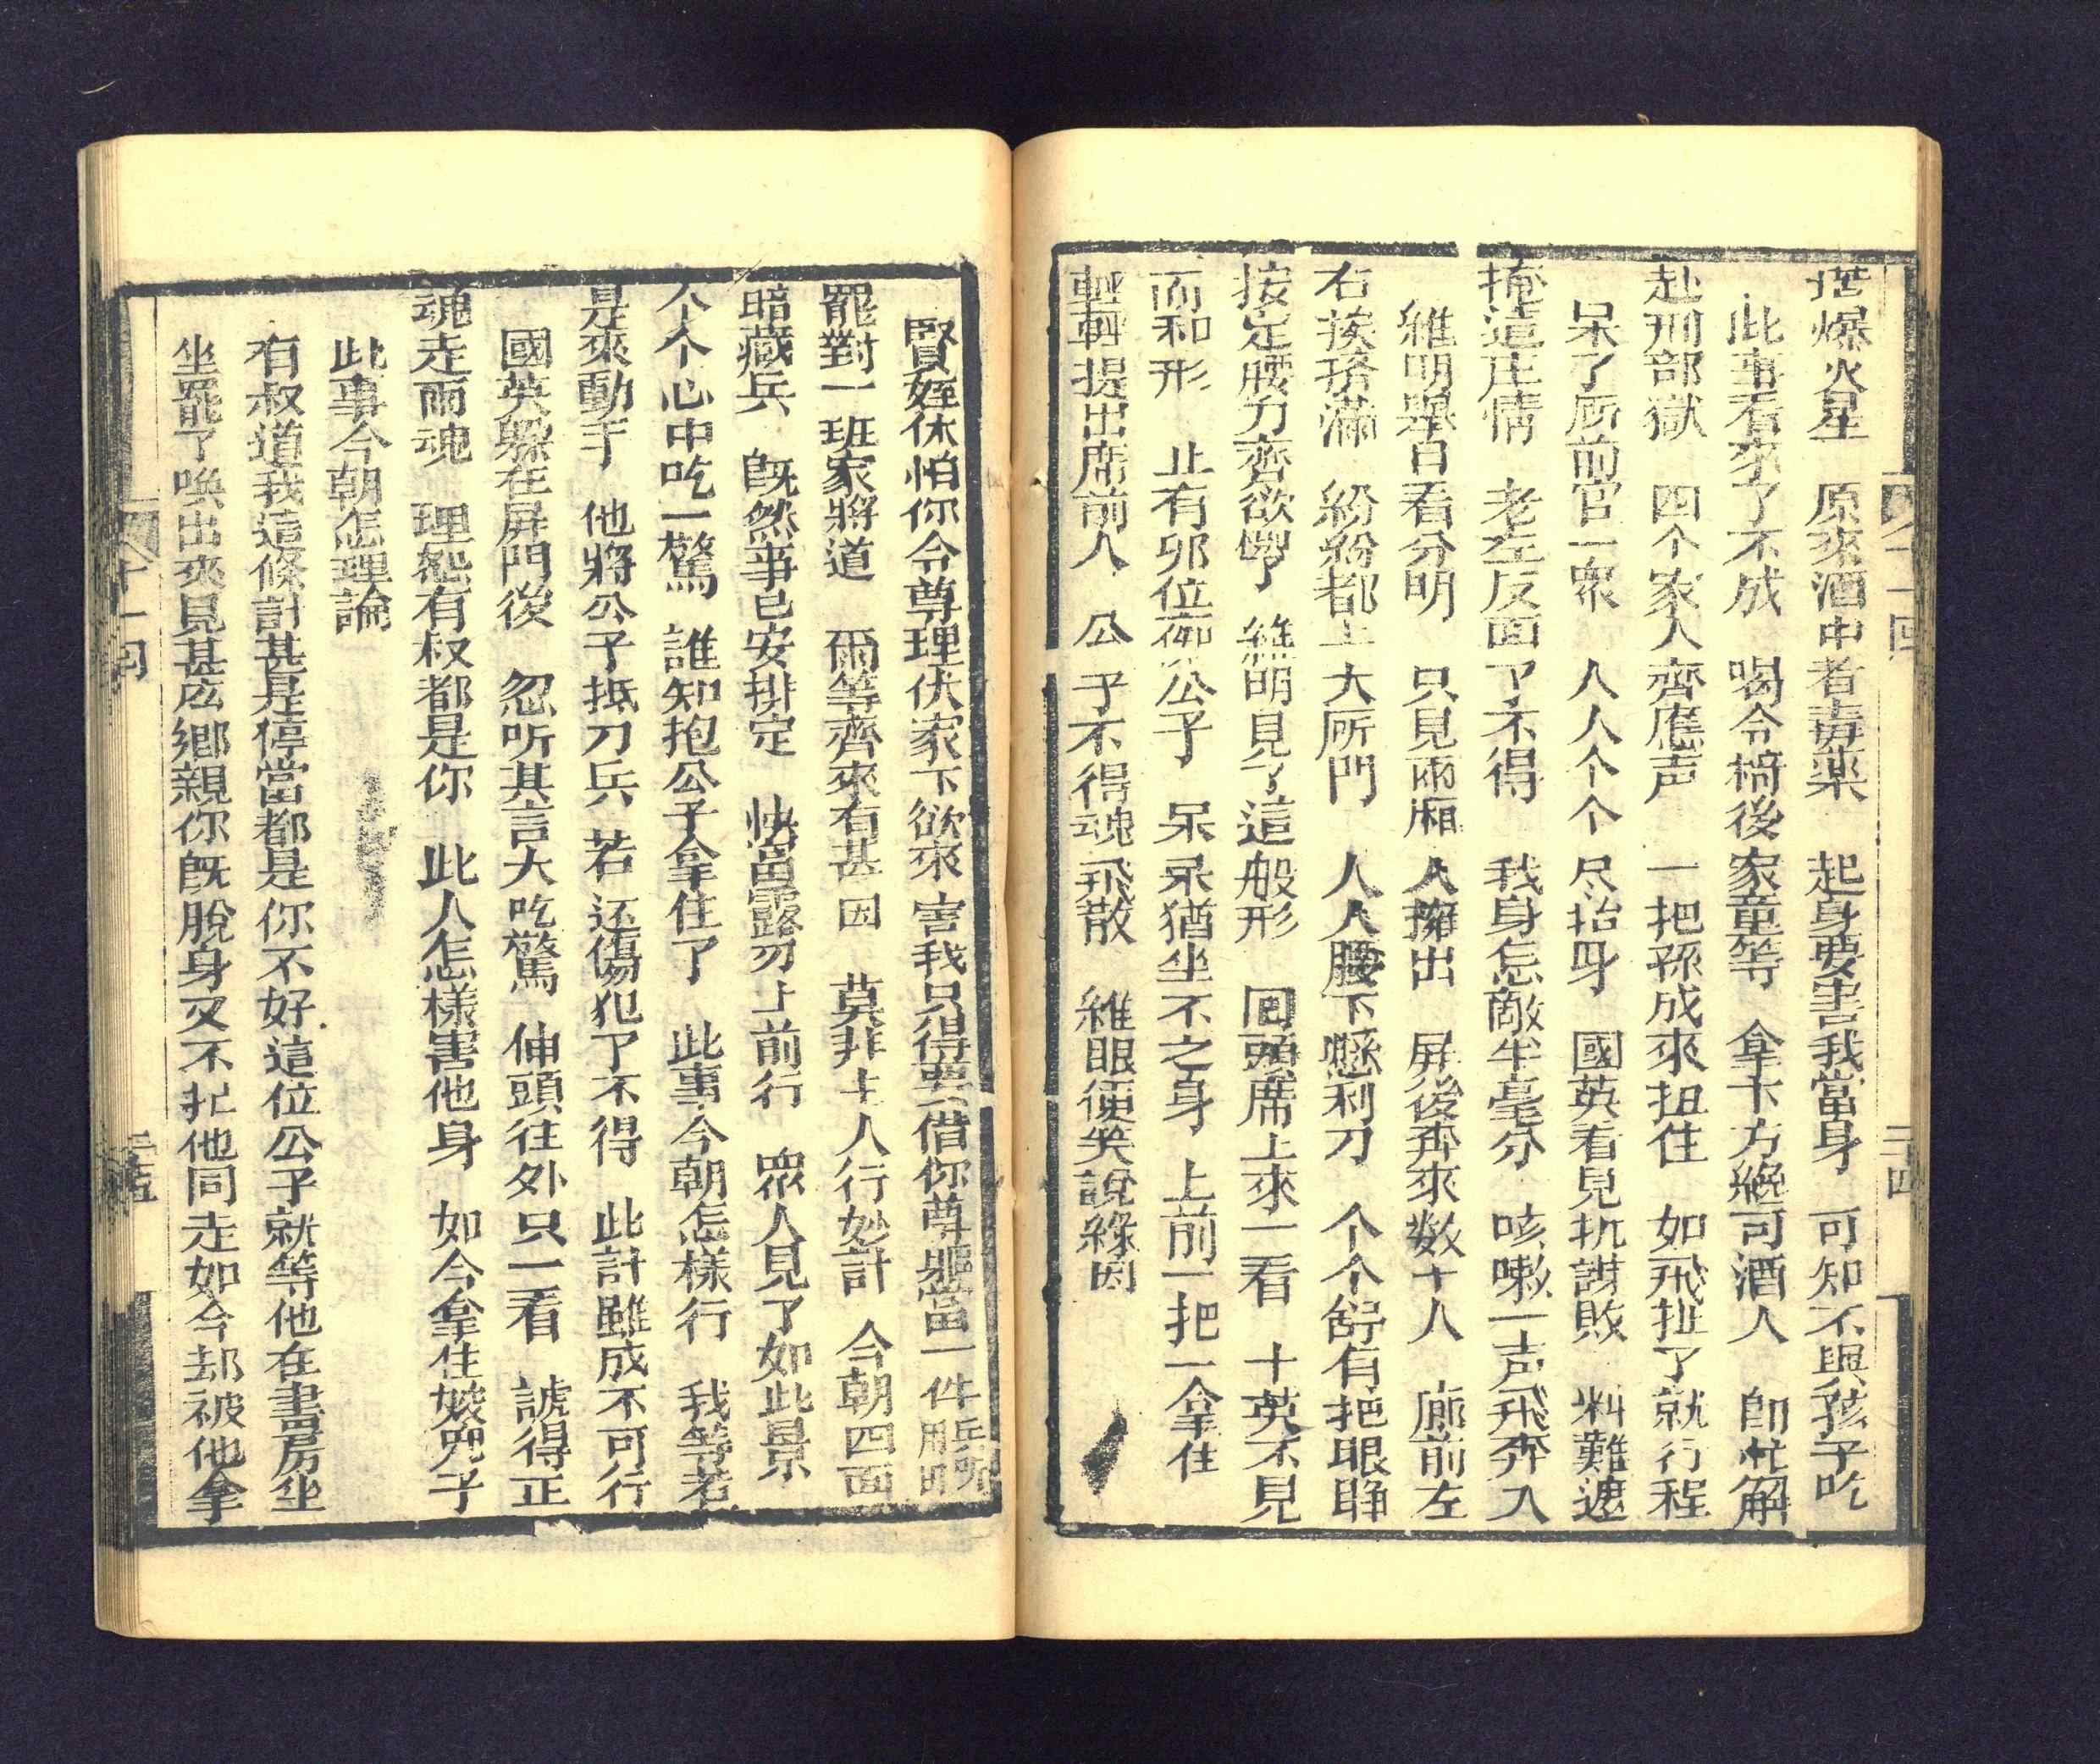 爆火星　原來酒中者毒藥　起身要害我當身　可知不與孩子吃
此事看來了不成　喝令椅後家童等　拿卞方絶可酒人　即忙解
赴刑部獄　四个家人齊應声　一把孫成來扭住　如飛扯了就行程
呆了㕔前官一衆　人人个个尽抬身　國英看見机謀敗　料難遮
掩這庄情　老左反面了不得　我身怎敵半毫分　咳嗽一声飛奔入
維明舉目看分明　只見兩廂人擁出　屏後奔來数十人　廊前左
右挨擠滿　紛紛都上大㕔門　人人腰下懸利刀　个个舒有把眼睁
按定腰刀齊欲　維明見了這般形　回頭席上來一看　十英不見
而和形　止有夘位柳公子　呆呆猶坐不之身　上前一把一拿住
輕輕提出席前人　公子不得魂飛散　維眼便笑說緣因
賢姪休怕你令尊理伏家下欲來害我只得要借你尊軀當一件兵
罷對一班家將道　爾等齊來有甚因　莫非主人行妙計　今朝四面
暗藏兵　既然事已安排定　快當露刃上前行　衆人見了如此景
个个心中吃一驚　誰知抱公子拿住了　此事今朝怎樣行　我等若
是來動手　他將公子抵刀兵　若还傷犯了不得　此計雖成不可行
國英躱在屏門後　忽听其言大吃驚　伸頭往外只一看　諕得正
魂走兩魂　理怨有叔都是你　此人怎樣害他身　如今拿住嫂兒子
此事今朝怎理論
有叔道我這條計甚是停當都是你不好這位公子就等他在書房坐
坐罷了喚出來見甚広鄉親你既脫身又不扯他同走如今却被他拿
十一囘
二十四
十一囘